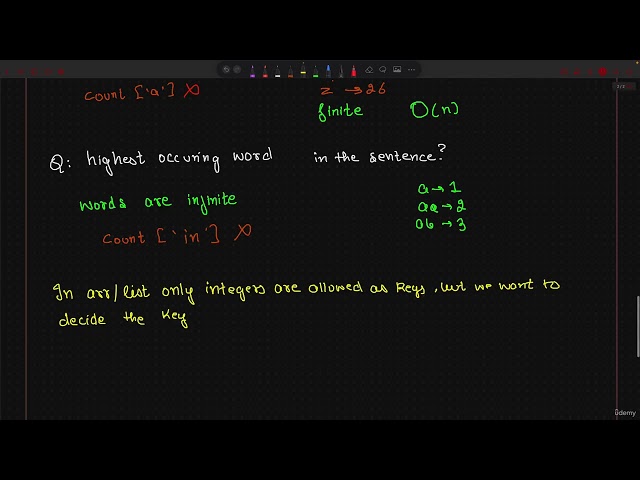 count ['a'] X
z → 26
finite O(n)
Q: highest occuring word in the sentence?
words are infinite
a → 1
aa → 2
ab → 3
count ['in'] X
In arr/list only integers are allowed as keys, but we want to
decide the key
2/2
ûdemy